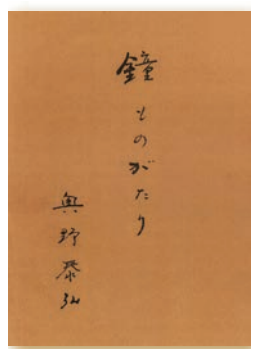 鐘ものがたり
奥野泰弘